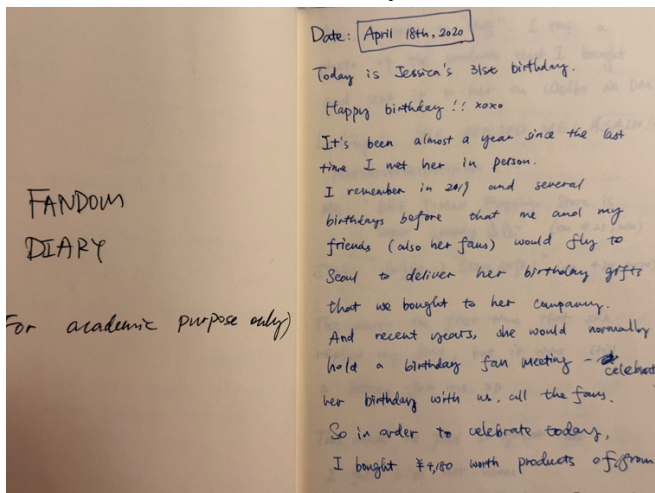 FANDOM
DIARY
For academic purpose only)
Date: April 18th, 2020
Today is Jessica's 31st birthday.
Happy birthday !! xoxo
It's been almost a year since the last
time I met her in person.
I remember in 2019 and several
birthdays before that me and my
friends (also her fans) would fly to
Seoul to deliver her birthday gifts
that we bought to her company.
And recent years, she would normally
hold a birthday fan meeting - celebrat
her birthday with us, all the fans.
So in order to celebrate today,
I bought ¥4,180 worth products of from